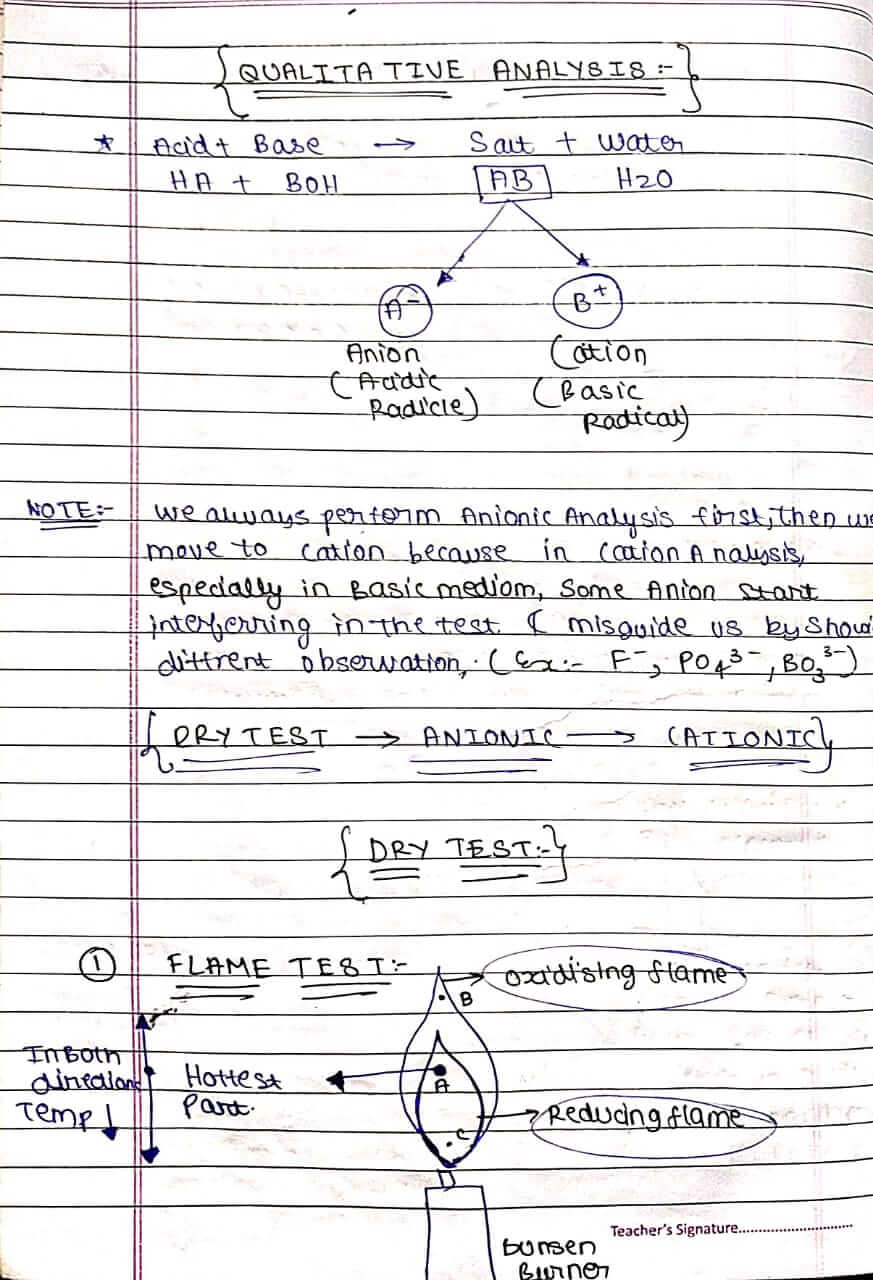 QUALITATIVE ANALYSIS :-
* Acid + Base → Salt + Water
HA + BOH AB H2O
A⁻ B⁺
Anion Cation
(Acidic (Basic
Radicle) Radical)
NOTE:- We always perform Anionic Analysis first, then we
move to cation because in cation Analysis,
especially in Basic mediom, Some Anion Start
interferring in the test. & misguide us by Show
diffrent observation, (Ex:- F⁻, PO₄³⁻, BO₃³⁻)
{DRY TEST → ANIONIC → CATIONIC}
{DRY TEST:-}
① FLAME TEST:-
Oxidising flame
B
In Both
direction
Temp ↓
Hottest
Part.
A
Reducing flame
C
D
Teacher's Signature
bunsen
Burner